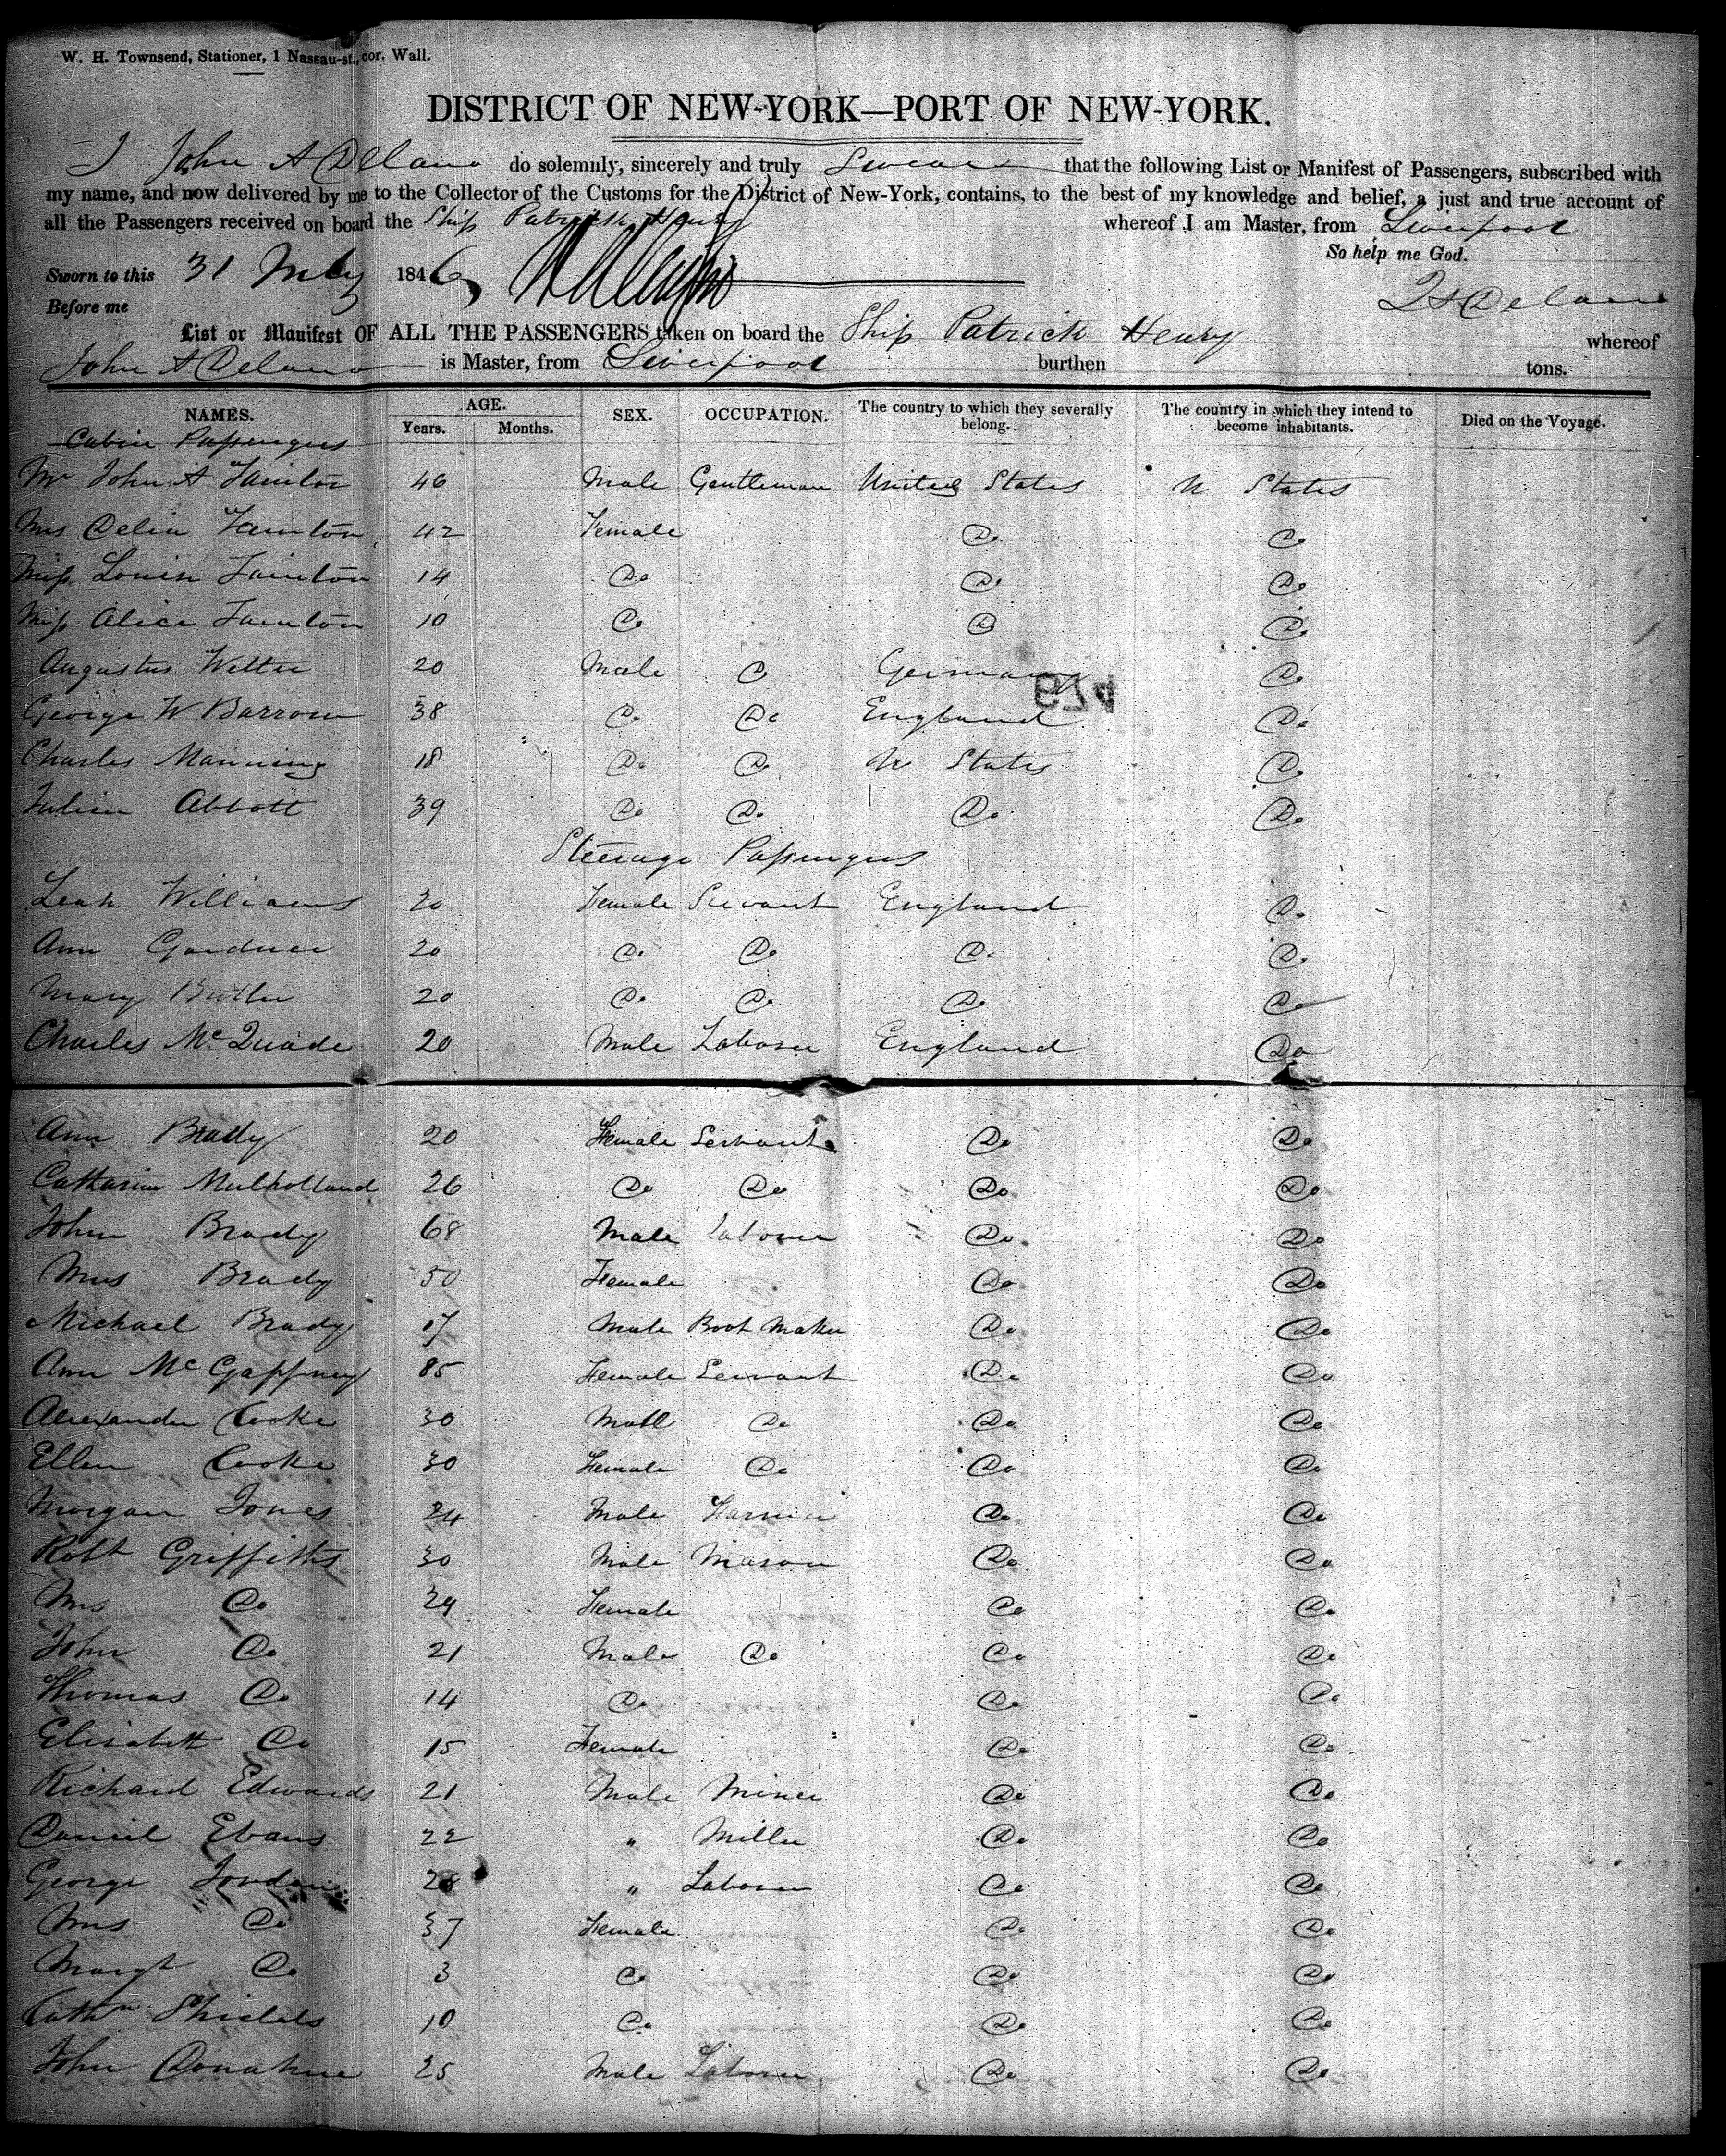 W. H. Townsend, Stationer, 1 Nassau-st., cor. Wall.
DISTRICT OF NEW-YORK—PORT OF NEW-YORK.
I John A Delano do solemnly, sincerely and truly Swear that the following List or Manifest of Passengers, subscribed with
my name, and now delivered by me to the Collector of the Customs for the District of New-York, contains, to the best of my knowledge and belief, a just and true account of
all the Passengers received on board the Ship Patrick Henry whereof I am Master, from Liverpool
So help me God.
Sworn to this 31 1846
Before me Delano
List or Manifest OF ALL THE PASSENGERS taken on board the Ship Patrick Henry whereof
John A Delano is Master, from Liverpool burthen tons.
NAMES. AGE. Years. Months. SEX. OCCUPATION. The country to which they severally belong. The country in which they intend to become inhabitants. Died on the Voyage.
Cabin Passengers
Mr John A Tainton 46 Male Gentleman United States U States
Mrs Delia Tainton 42 Female Do Do
Miss Louisa Tainton 14 Do Do Do
Miss Alice Tainton 10 Do Do Do
Augustus 20 Male Do Germany Do
974
George W Barrow 38 Do Do England Do
Charles Manning 18 Do Do U States Do
Julian Abbott 39 Do Do Do Do
Steerage Passengers
Leah Williams 20 Female Servant England Do
Ann Gardner 20 Do Do Do Do
Mary Butler 20 Do Do Do Do
Charles McQuade 20 Male Laborer England Do
Ann Brady 20 Female Servant Do Do
Catharine Mulholland 26 Do Do Do Do
John Brady 68 Male Laborer Do Do
Mrs Brady 50 Female Do Do
Michael Brady 17 Male Boot Maker Do Do
Ann McGaffney 85 Female Servant Do Do
Alexander Cooke 30 Male Do Do Do
Ellen Cooke 30 Female Do Do Do
Morgan Jones 24 Male Farmer Do Do
Robt Griffiths 30 Male Mason Do Do
Mrs Do 29 Female Do Do
John Do 21 Male Do Do Do
Thomas Do 14 Do Do Do
Elisabeth Do 15 Female Do Do
Richard Edwards 21 Male Miner Do Do
Daniel Evans 22 " Miller Do Do
George Jordan 28 " Laborer Do Do
Mrs Do 37 Female Do Do
Margt Do 3 Do Do Do
Cathn Shields 10 Do Do Do
John Donahue 25 Male Laborer Do Do